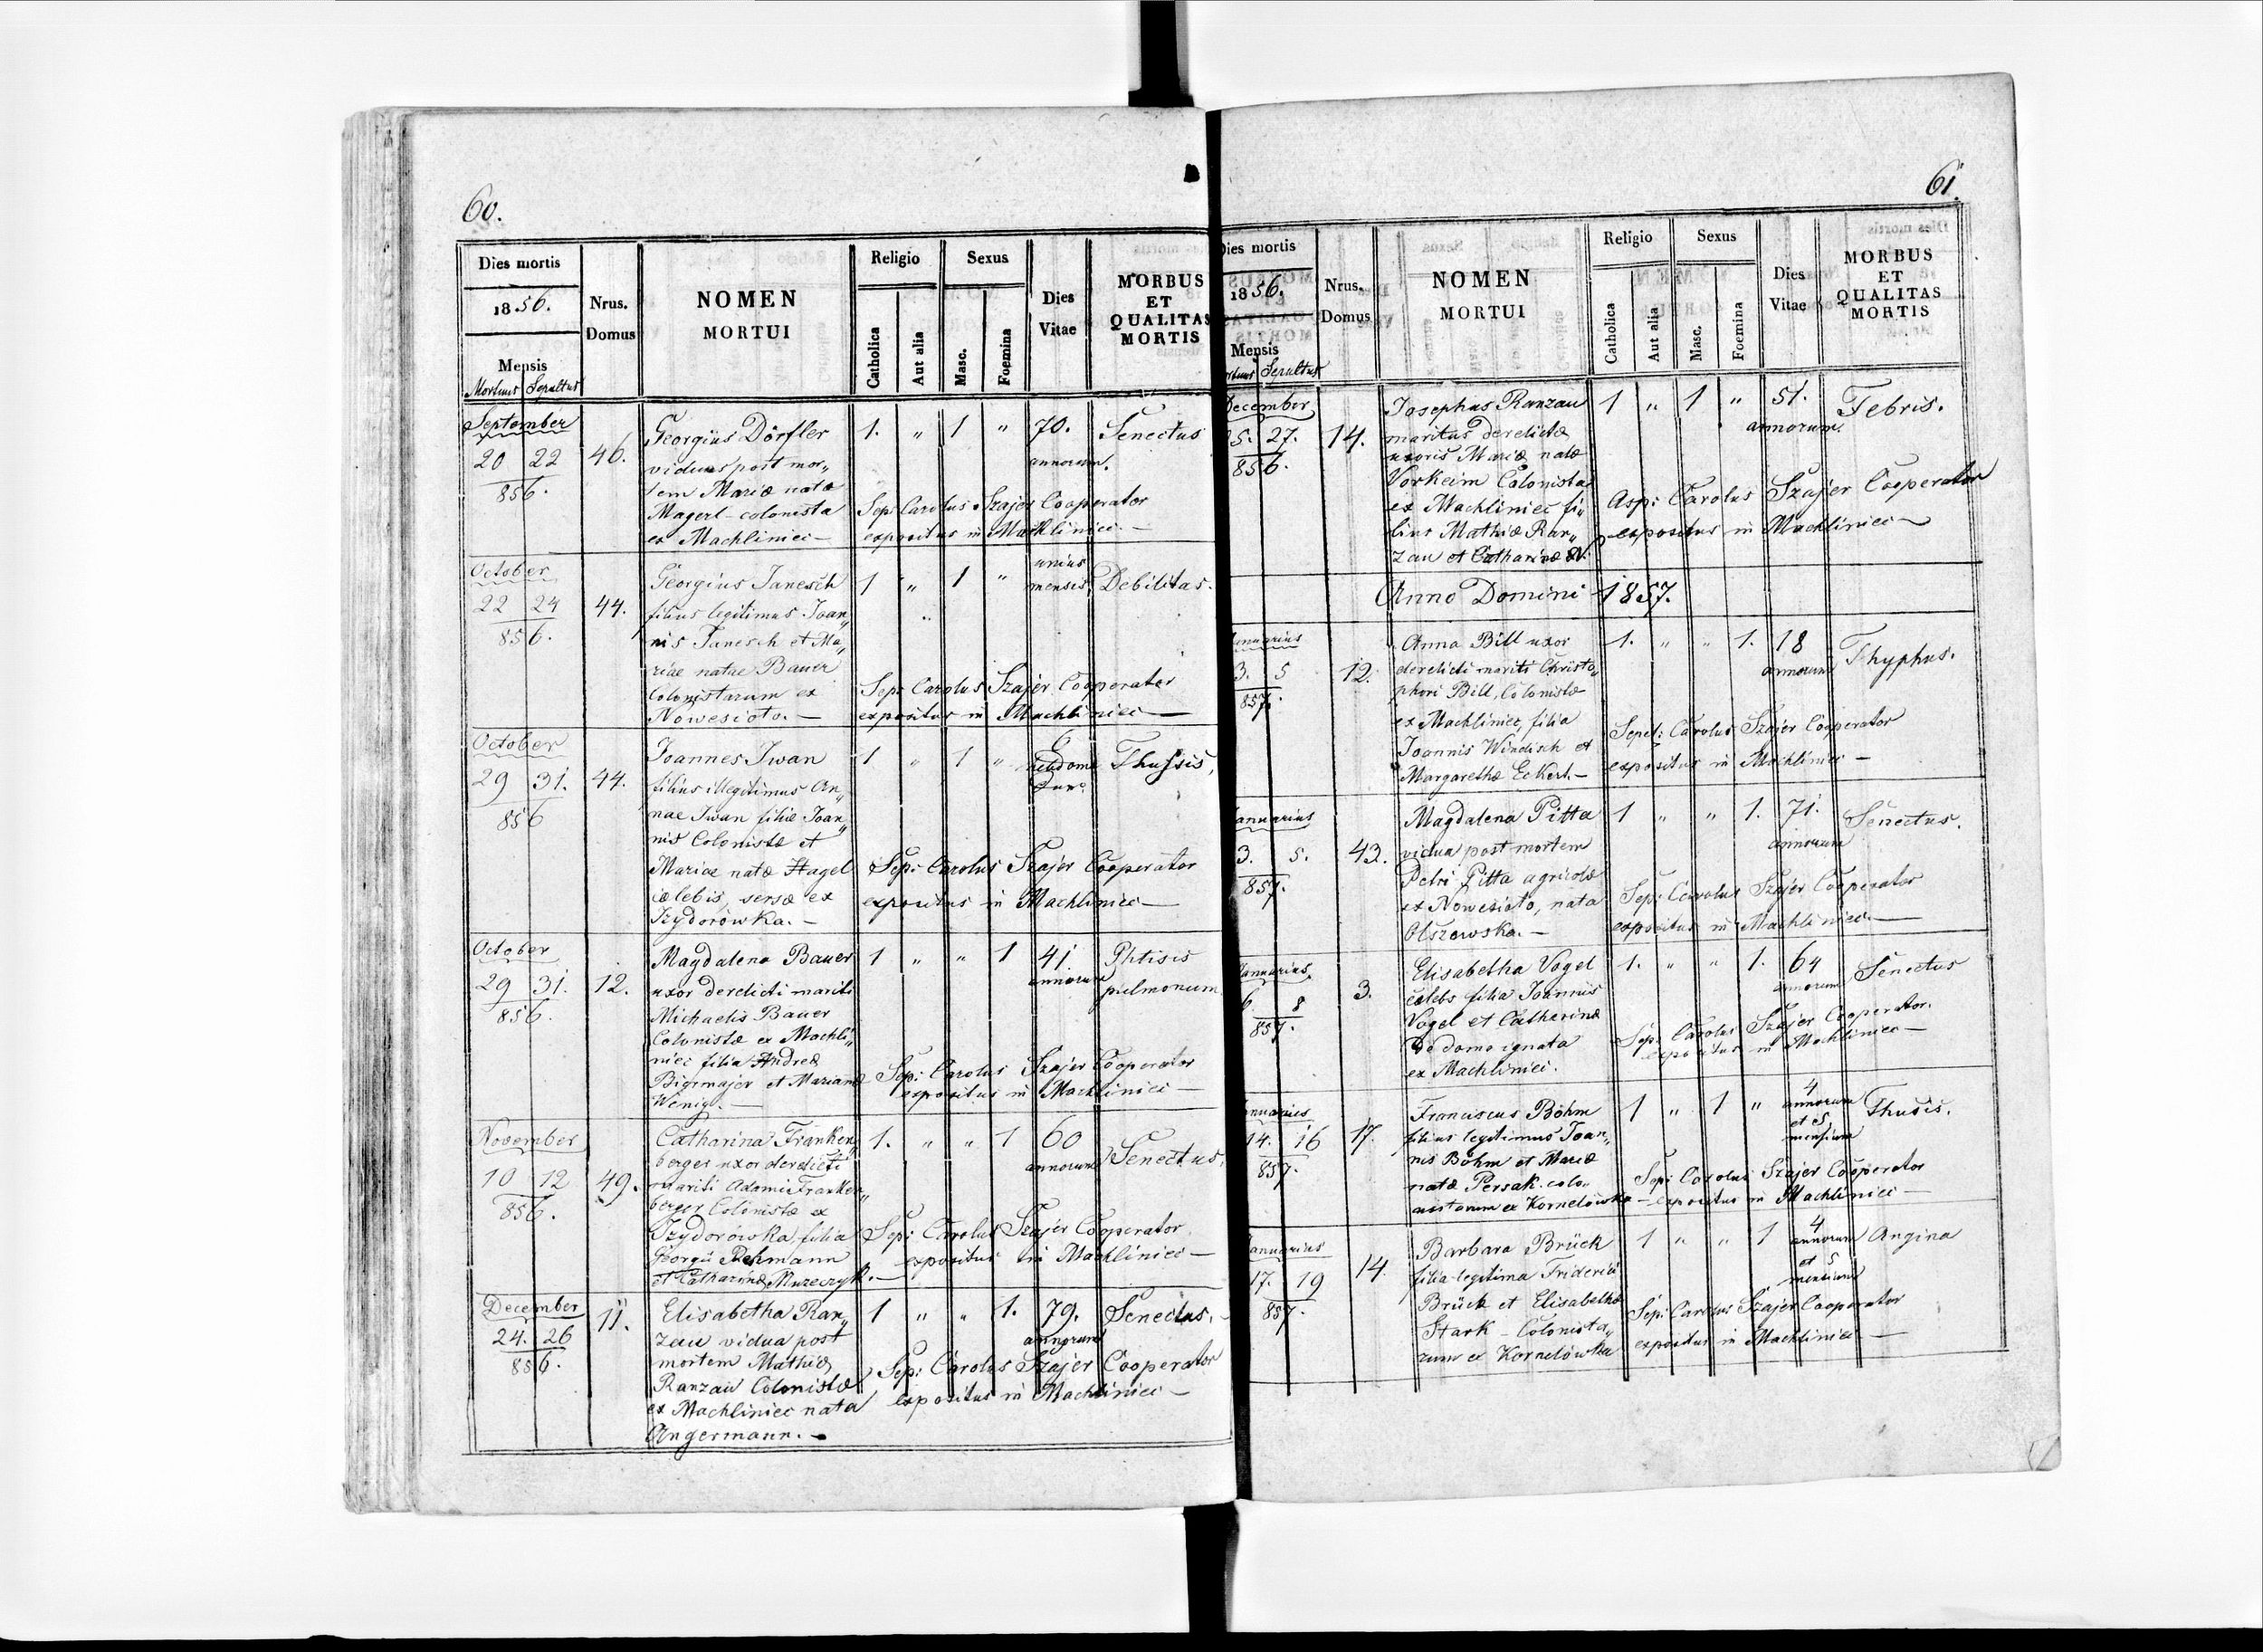 60.
Dies mortis
1856.
Mensis
Mortuus Sepultus
Nrus.
Domus
NOMEN
MORTUI
Religio
Catholica
Aut alia
Sexus
Masc.
Foemina
Dies
Vitae
MORBUS
ET
QUALITAS
MORTIS
September
20 22
856.
46.
Georgius Dörfler
viduus post mor„
tem Mariæ natæ
Magerl - colonista
ex Machliniec —
1. „ 1 „ 70.
annorum.
Senectus
Sep: Carolus Szajer Cooperator
expositus in Machliniec —
October
22 24
856.
44.
Georgius Janesch
filius legitimus Joan„
nis Janesch et Ma„
riae natae Bauer
Colonistarum ex
Nowesioto. —
1 „ 1 „
unius
mensis.
Debilitas.
Sep: Carolus Szajer Cooperator
expositus in Machliniec —
October
29 31.
856
44.
Joannes Iwan
filius illegitimus An„
nae Iwan filiæ Joan„
nis Colonistæ et
Mariae natæ Hagel
cælebis, servæ ex
Izydorówka. —
1 „ 1 „
6
Thussis,
Sep: Carolus Szajer Cooperator
expositus in Machliniec —
October
29 31.
856.
12.
Magdalena Bauer
uxor derelicti mariti
Michaelis Bauer
Colonistæ ex Machli„
niec filia Andreæ
Bigrmajer et Mariannæ
Wenig. —
1 „ „ 1 41
annorum
Phtisis
pulmonum.
Sep: Carolus Szajer Cooperator
expositus in Machliniec —
November
10 12
856.
49.
Catharina Franken„
berger uxor derelicti
mariti Adami Franken„
berger Colonistæ ex
Izydorówka, filia
Georgii Rehmann
et Catharinæ Mureczyk. —
1. „ „ 1 60
annorum
Senectus,
Sep: Carolus Szajer Cooperator
expositus in Machliniec —
December
24. 26
856.
11.
Elisabetha Ran„
zau vidua post
mortem Mathiæ
Ranzau Colonistæ
ex Machliniec nata
Angermann. —
1 „ „ 1. 79.
annorum
Senectus.
Sep: Carolus Szajer Cooperator
expositus in Machliniec —
61.
Dies mortis
1856.
Mensis
Sepultus
Nrus.
Domus
NOMEN
MORTUI
Religio
Catholica
Aut alia
Sexus
Masc.
Foemina
Dies
Vitae
MORBUS
ET
QUALITAS
MORTIS
December
25. 27.
856.
14.
Josephus Ranzau
maritus derelictæ
uxoris Mariæ natæ
Vorkeim Colonista
ex Machliniec fi„
lius Mathiæ Ran„
zau et Catharinæ N.
1 „ 1 „ 51.
annorum.
Febris.
Asp: Carolus Szajer Cooperator
expositus in Machliniec —
Anno Domini 1857.
Januarius
3. 5
857.
12.
Anna Bill uxor
derelicti mariti Christo„
phori Bill, Colonistæ
ex Machliniec, filia
Joannis Windisch et
Margarethæ Eckert. —
1. „ „ 1. 18
annorum
Thyphus.
Sepel: Carolus Szajer Cooperator
expositus in Machliniec —
Januarius
3. 5.
857.
43.
Magdalena Pitta
vidua post mortem
Petri Pitta agricolæ
ex Nowesioto, nata
Olszowska. —
1 „ „ 1. 71.
annorum
Senectus.
Sep: Carolus Szajer Cooperator
expositus in Machliniec. —
Januarius
6 8
857.
3.
Elisabetha Vogel
cælebs filia Joannis
Vogel et Catherinæ
de domo ignata
ex Machliniec.
1. „ „ 1. 64
annorum
Senectus
Sep: Carolus Szajer Cooperator.
expositus in Machliniec —
Januarius
14. 16
857.
17.
Franciscus Böhm
filius legitimus Joan„
nis Böhm et Mariæ
natæ Persak. colo„
nistarum ex Kornelówka —
1 „ 1 „
4
annorum
et 5
mensium
Thusis.
Sep: Carolus Szajer Cooperator
expositus in Machliniec —
Januarius
17. 19
857.
14.
Barbara Brück
filia legitima Friderici
Brück et Elisabethæ
Stark - Colonista„
rum ex Kornelówka
1 „ „ 1
4
annorum
et 5
mensium
Angina
Sep: Carolus Szajer Cooperator
expositus in Machliniec —